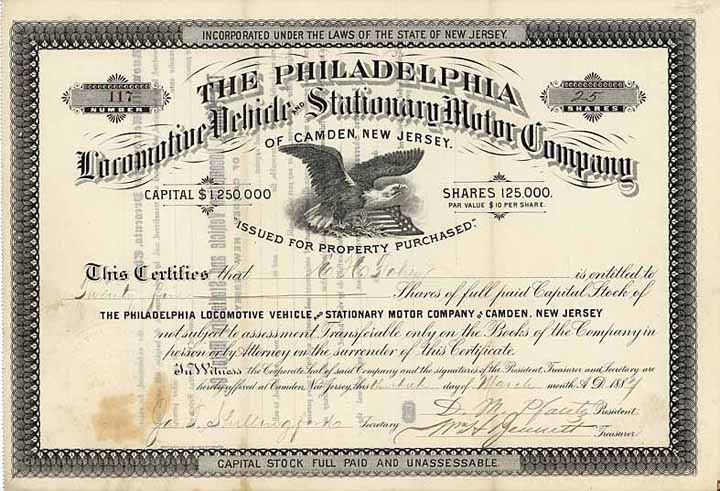 INCORPORATED UNDER THE LAWS OF THE STATE OF NEW JERSEY.
117
NUMBER
25
SHARES
THE PHILADELPHIA
Locomotive Vehicle AND Stationary Motor Company
OF CAMDEN, NEW JERSEY.
CAPITAL $1,250,000
SHARES 125,000.
PAR VALUE $10 PER SHARE.
"ISSUED FOR PROPERTY PURCHASED."
This Certifies that is entitled to
Twenty five Shares of full paid Capital Stock of
THE PHILADELPHIA LOCOMOTIVE VEHICLE, AND STATIONARY MOTOR COMPANY OF CAMDEN, NEW JERSEY
not subject to assessment Transferable only on the Books of the Company in
person or by Attorney on the surrender of this Certificate.
In Witness the Corporate Seal of said Company and the signatures of the President, Treasurer and Secretary are
hereby affixed at Camden, New Jersey, this day of March month A.D. 1884
Jas. S. Shillingford Secretary
D. M. Pfautz President
Wm H Bennett Treasurer
CAPITAL STOCK FULL PAID AND UNASSESSABLE.